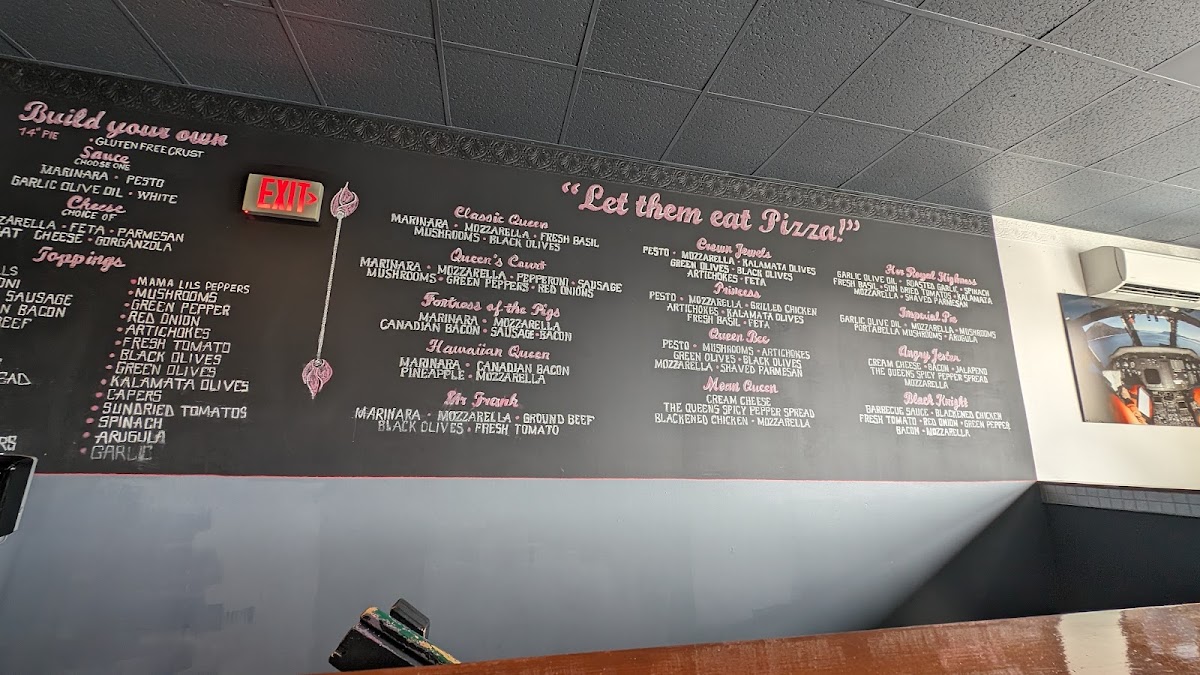 Build your own
14" PIE
• GLUTEN FREE CRUST
Sauce
CHOOSE ONE
MARINARA • PESTO
GARLIC OLIVE OIL • WHITE
Cheese
CHOICE OF
ZARELLA • FETA • PARMESAN
CHEESE • GORGANZOLA
Toppings
SAUSAGE
BACON
• MAMA LILS PEPPERS
• MUSHROOMS
• GREEN PEPPER
• RED ONION
• ARTICHOKES
• FRESH TOMATO
• BLACK OLIVES
• GREEN OLIVES
• KALAMATA OLIVES
• CAPERS
• SUNDRIED TOMATOS
• SPINACH
• ARUGULA
• GARLIC
EXIT
"Let them eat Pizza!"
Classic Queen
MARINARA • MOZZARELLA • FRESH BASIL
MUSHROOMS • BLACK OLIVES
Queen's Court
MARINARA • MOZZARELLA • PEPPERONI • SAUSAGE
MUSHROOMS • GREEN PEPPERS • RED ONIONS
Fortress of the Pigs
MARINARA • MOZZARELLA
CANADIAN BACON • SAUSAGE • BACON
Hawaiian Queen
MARINARA • CANADIAN BACON
PINEAPPLE • MOZZARELLA
Mr Frank
MARINARA • MOZZARELLA • GROUND BEEF
BLACK OLIVES • FRESH TOMATO
Crown Jewels
PESTO • MOZZARELLA • KALAMATA OLIVES
GREEN OLIVES • BLACK OLIVES
ARTICHOKES • FETA
Princess
PESTO • MOZZARELLA • GRILLED CHICKEN
ARTICHOKES • KALAMATA OLIVES
FRESH BASIL • FETA
Queen Bee
PESTO • MUSHROOMS • ARTICHOKES
GREEN OLIVES • BLACK OLIVES
MOZZARELLA • SHAVED PARMESAN
Mean Queen
CREAM CHEESE
THE QUEENS SPICY PEPPER SPREAD
BLACKENED CHICKEN • MOZZARELLA
Her Royal Highness
GARLIC OLIVE OIL • ROASTED GARLIC • SPINACH
FRESH BASIL • SUN DRIED TOMATOS • KALAMATA
MOZZARELLA • SHAVED PARMESAN
Imperial Pie
GARLIC OLIVE OIL • MOZZARELLA • MUSHROOMS
PORTABELLA MUSHROOMS • ARUGULA
Angry Jester
CREAM CHEESE • BACON • JALAPENO
THE QUEENS SPICY PEPPER SPREAD
MOZZARELLA
Black Knight
BARBECUE SAUCE • BLACKENED CHICKEN
FRESH TOMATO • RED ONION • GREEN PEPPER
BACON • MOZZARELLA